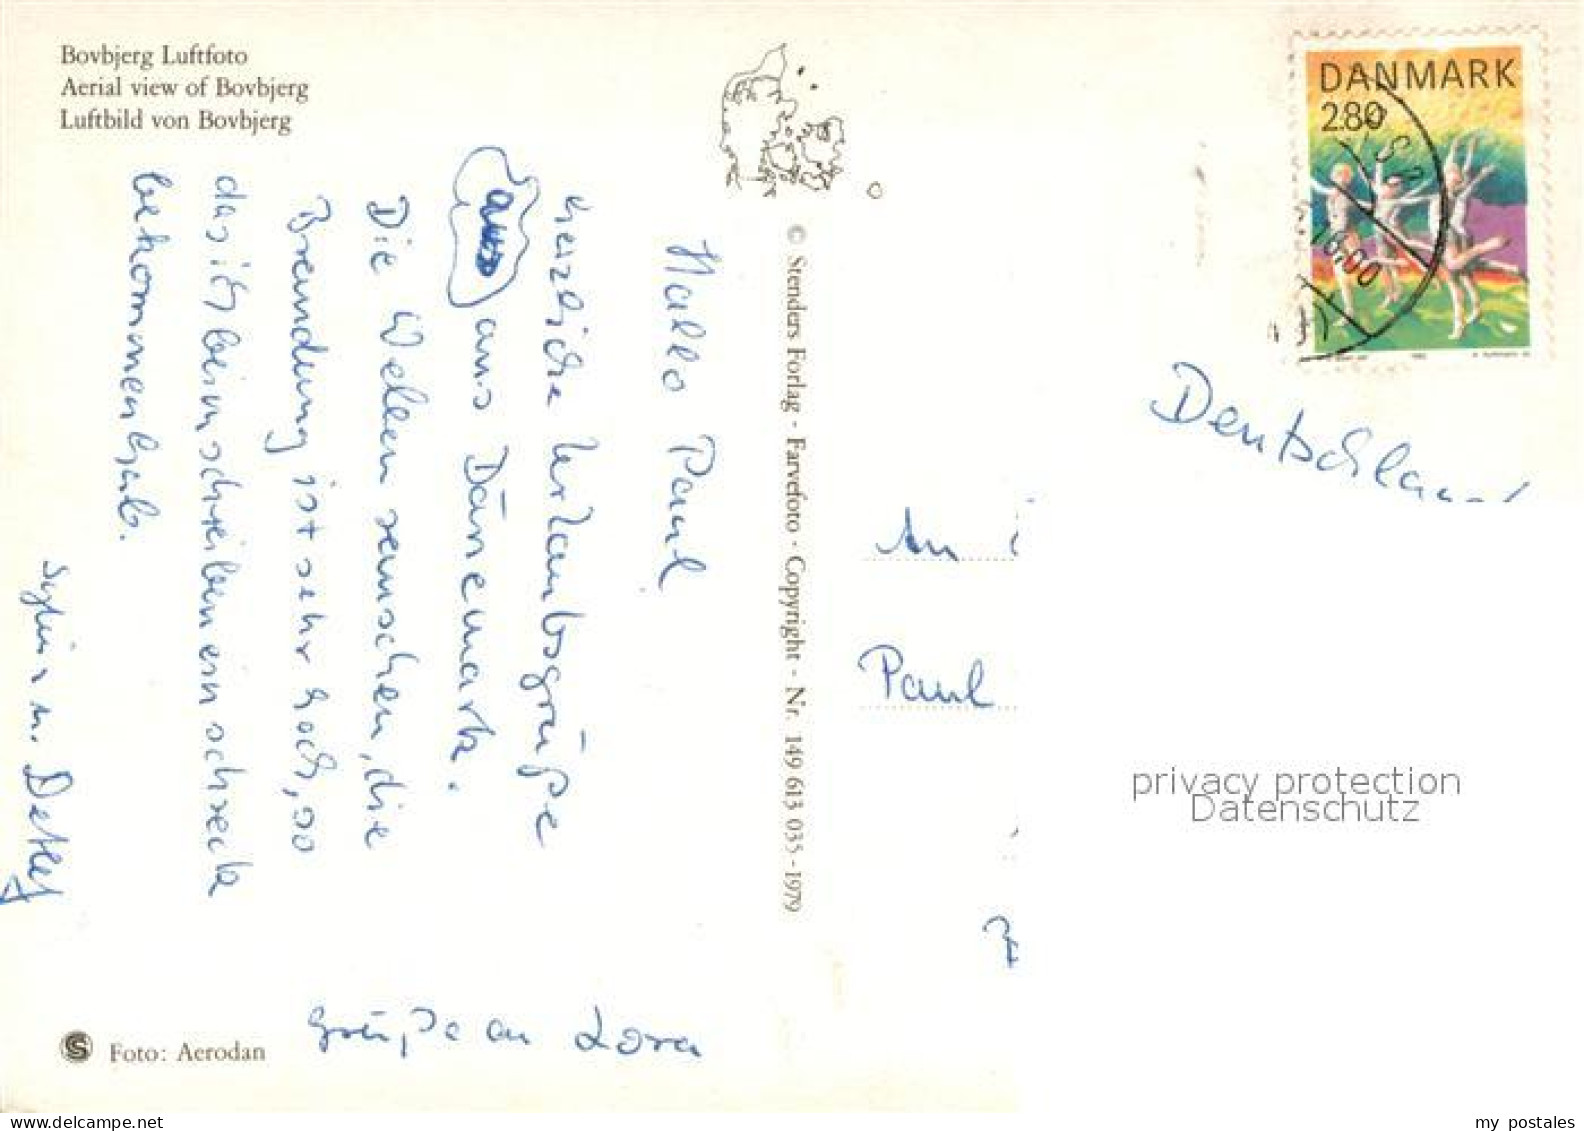 Bovbjerg Luftfoto
Aerial view of Bovbjerg
Luftbild von Bovbjerg
Hallo Paul
herzliche Urlaubsgrüße
aus Dänemark.
Die Wellen rauschen, die
Brandung ist sehr hoch, so
das ich beim schreiben ein schreck
bekommen hab.
u. Detlef
Grüße an Lora
Foto: Aerodan
© Stenders Forlag - Farvefoto - Copyright - Nr. 149 613 035 - 1979
DANMARK
280
16.00
Deutschland
An
Paul
privacy protection
Datenschutz
my postales